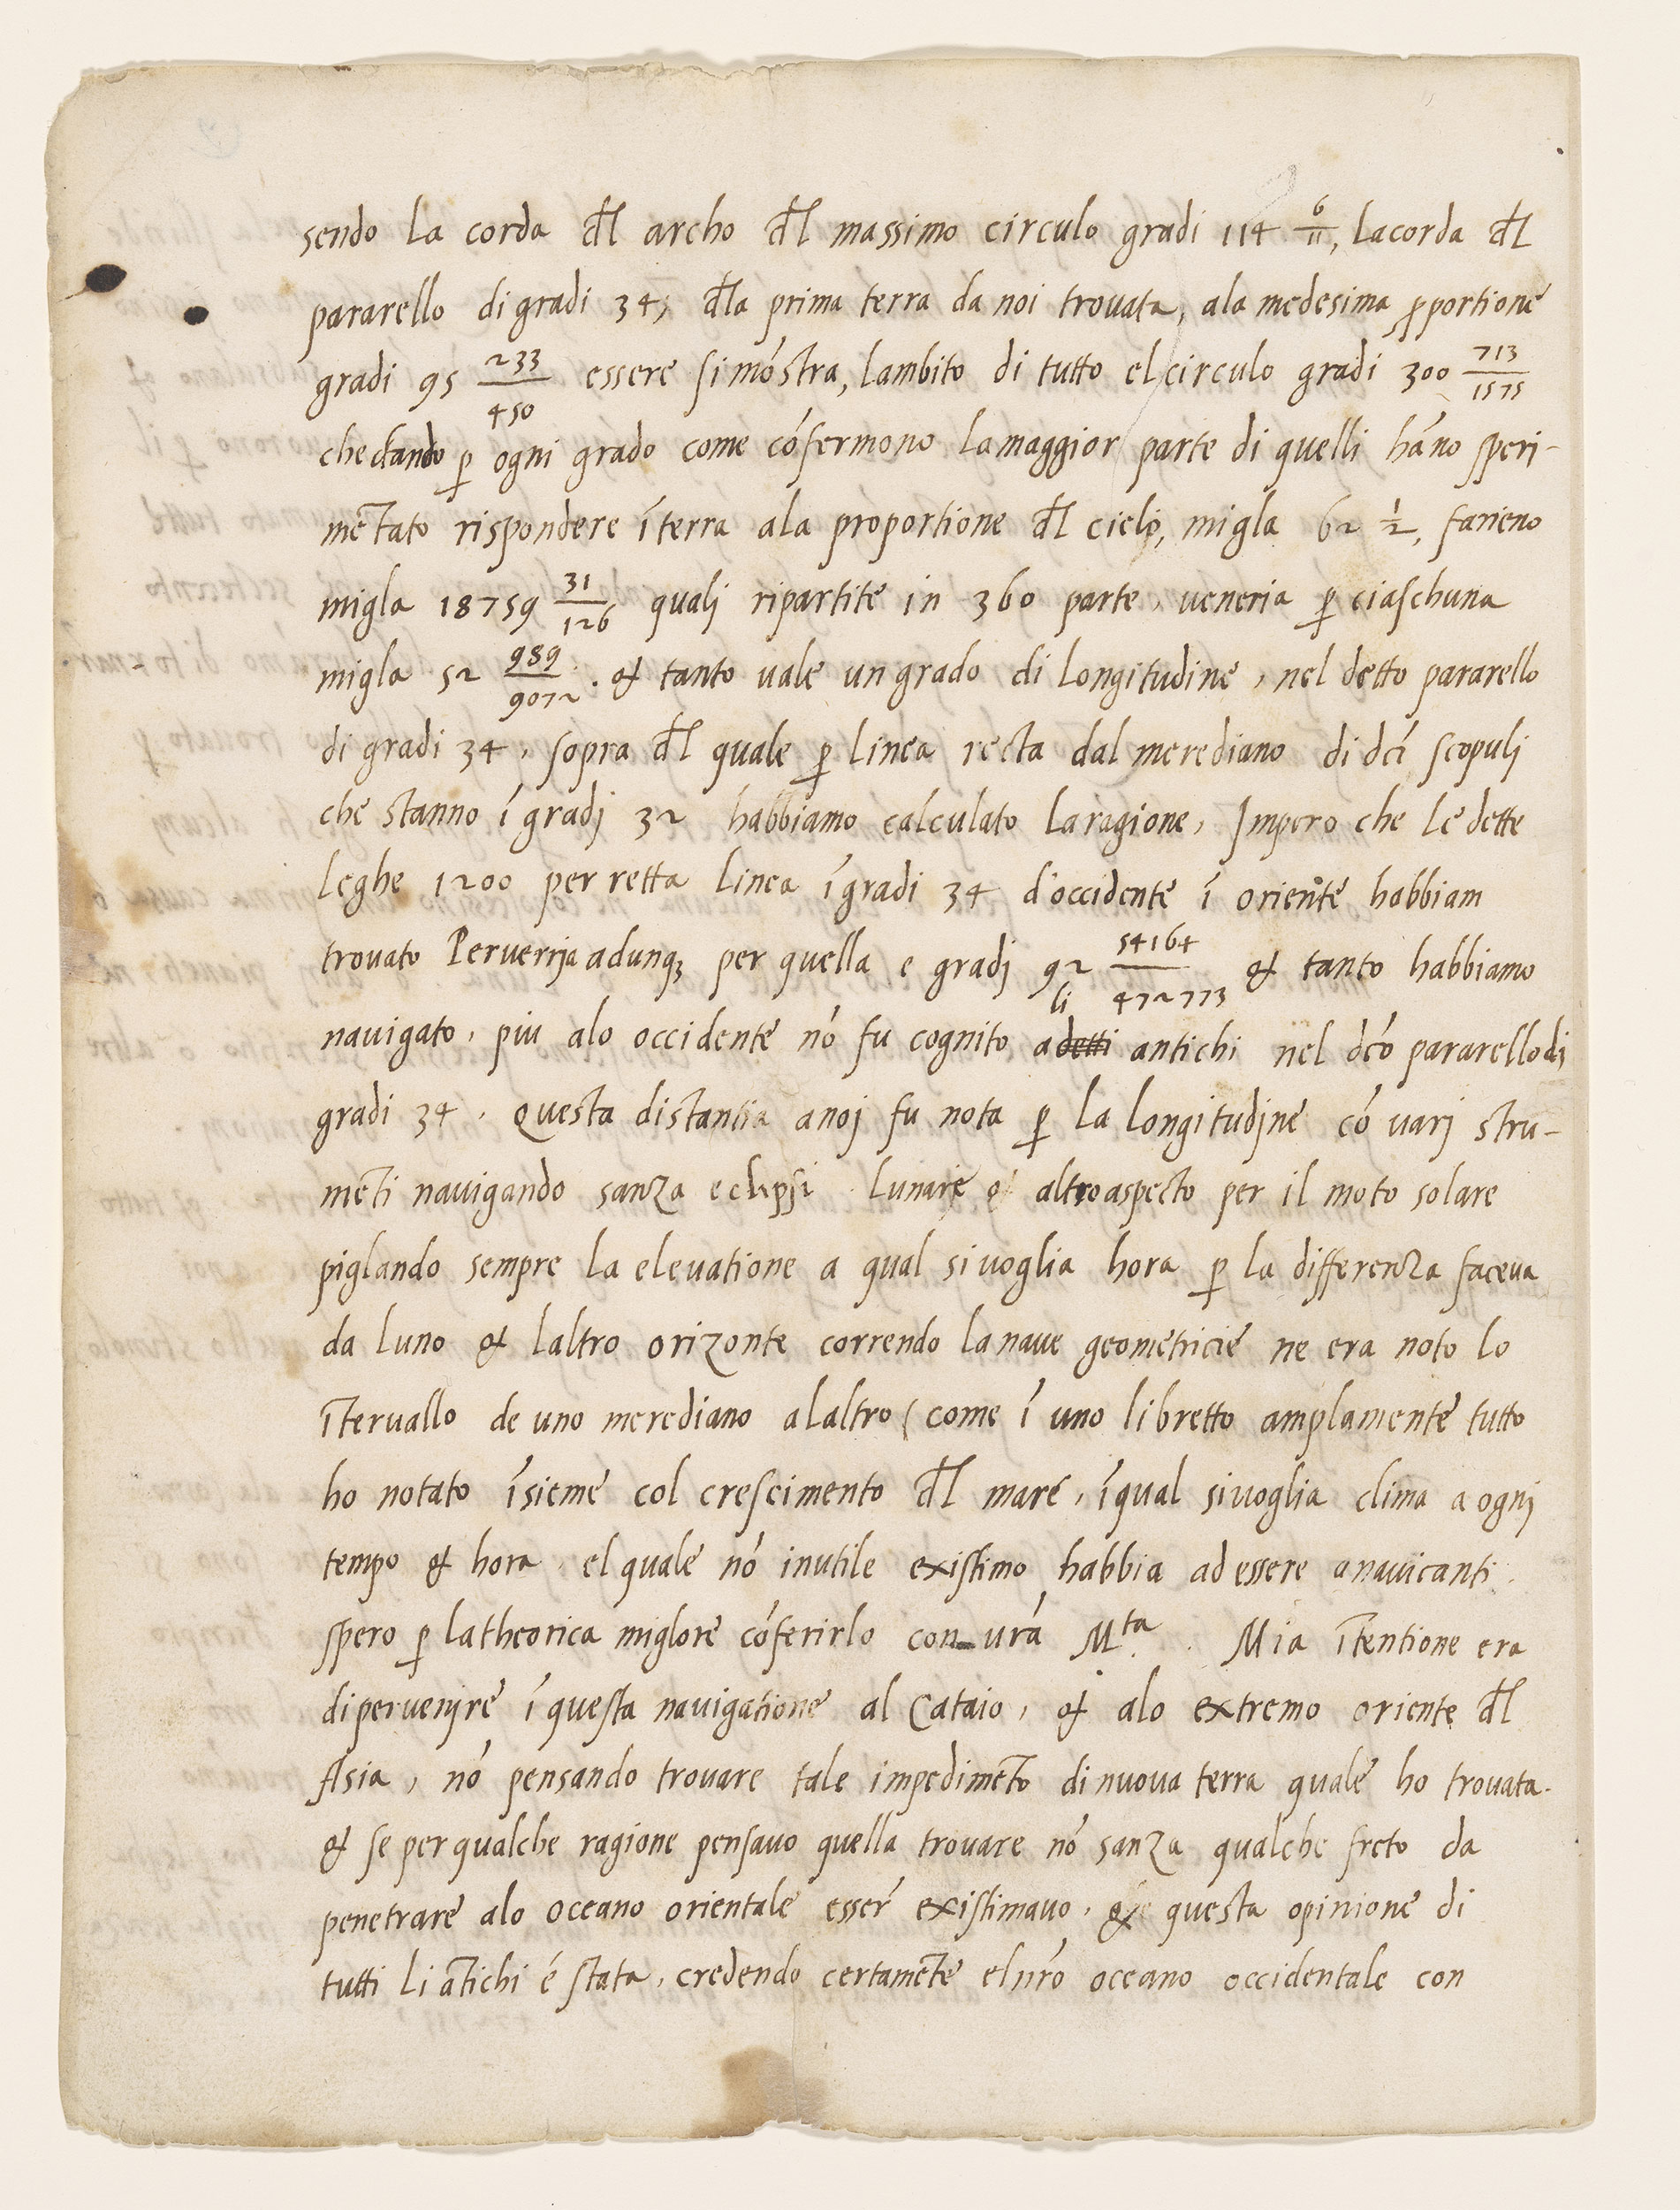 sendo la corda dl archo dl massimo circulo gradi 114 6/11, lacorda dl
pararello di gradi 34, dla prima terra da noi trouata, ala medesima p̱portione
gradi 95 233/450 essere si mōstra, lambito di tutto el circulo gradi 300 713/1575
che dando ꝑ ogni grado come cōfermono la maggior parte di quelli hāno speri-
mētato rispondere ī terra ala proportione dl cielo, migla 62 1/2, farieno
migla 18759 31/126 quali ripartite in 360 parte, veneria ꝑ ciaschuna
migla 52 989/9072. & tanto vale un grado di longitudine, nel detto pararello
di gradi 34, sopra dl quale ꝑ linea recta dal merediano di dcī scopuli
che stanno ī gradi 32 habbiamo calculato la ragione, Impero che le dette
leghe 1200 per retta linea ī gradi 34 d'occidente ī oriente habbiam
trouato Perveria adunqꝫ per quella e gradi 92 54164/472773 & tanto habbiamo
nauigato, piu alo occidente nō fu cognito a detti li antichi nel dcō pararello di
gradi 34. Questa distantia a noi fu nota ꝑ la longitudine cō varj stru-
mēti nauigando sanza eclipsi lunare o altro aspecto per il moto solare
piglando sempre la eleuatione a qual si uoglia hora ꝑ la differenza faceua
da luno & laltro orizonte correndo la naue geometricie ne era noto lo
īteruallo de uno merediano alaltro (come ī uno libretto amplamente tutto
ho notato īsieme col crescimento dl mare, ī qual si uoglia clima a ogni
tempo & hora, el quale nō inutile existimo habbia ad essere a nauicanti.
spero ꝑ la theorica miglore cōferirlo con urā Mta. Mia ītentione era
di peruenire ī questa nauigatione al Cataio, & alo extremo oriente dl
Asia, nō pensando trouare tale impedimēto di nuoua terra quale ho trouata.
& se per qualche ragione pensauo quella trouare nō sanza qualche freto da
penetrare alo oceano orientale esser existimauo, & questa opinione di
tutti li ātichi é stata, credendo certamēte el nrō oceano occidentale con